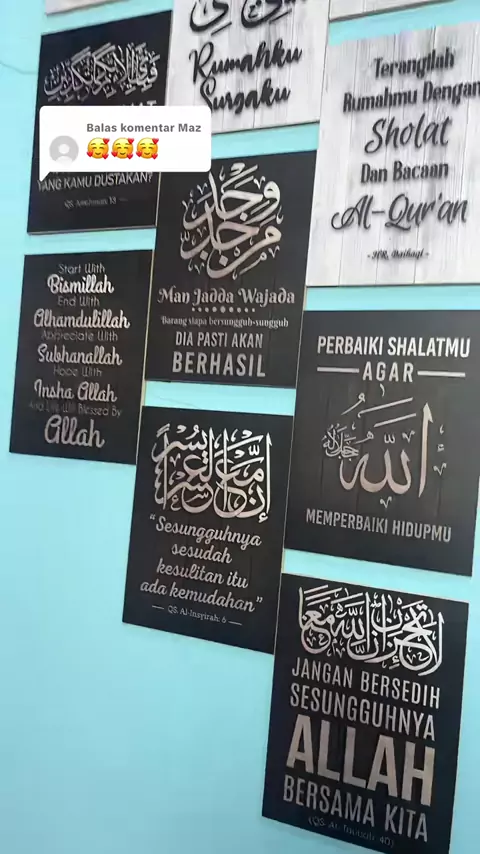 Balas komentar Maz
🥰🥰🥰
YANG KAMU DUSTAKAN?
Rumahku
Surgaku
Terangilah
Rumahmu Dengan
Sholat
Dan Bacaan
Al-Qur'an
- HR. Baihaqi -
Start With
Bismillah
End With
Alhamdulillah
Appreciate With
Subhanallah
Hope With
Insha Allah
And Life Will Blessed By
Allah
من جد وجد
Man Jadda Wajada
Barang siapa bersungguh-sungguh
DIA PASTI AKAN
BERHASIL
PERBAIKI SHALATMU
AGAR
الله
جل جلاله
MEMPERBAIKI HIDUPMU
إن مع العسر يسرا
“Sesungguhnya
sesudah
kesulitan itu
ada kemudahan”
QS. Al-Insyirah: 6
لا تحزن إن الله معنا
JANGAN BERSEDIH
SESUNGGUHNYA
ALLAH
BERSAMA KITA